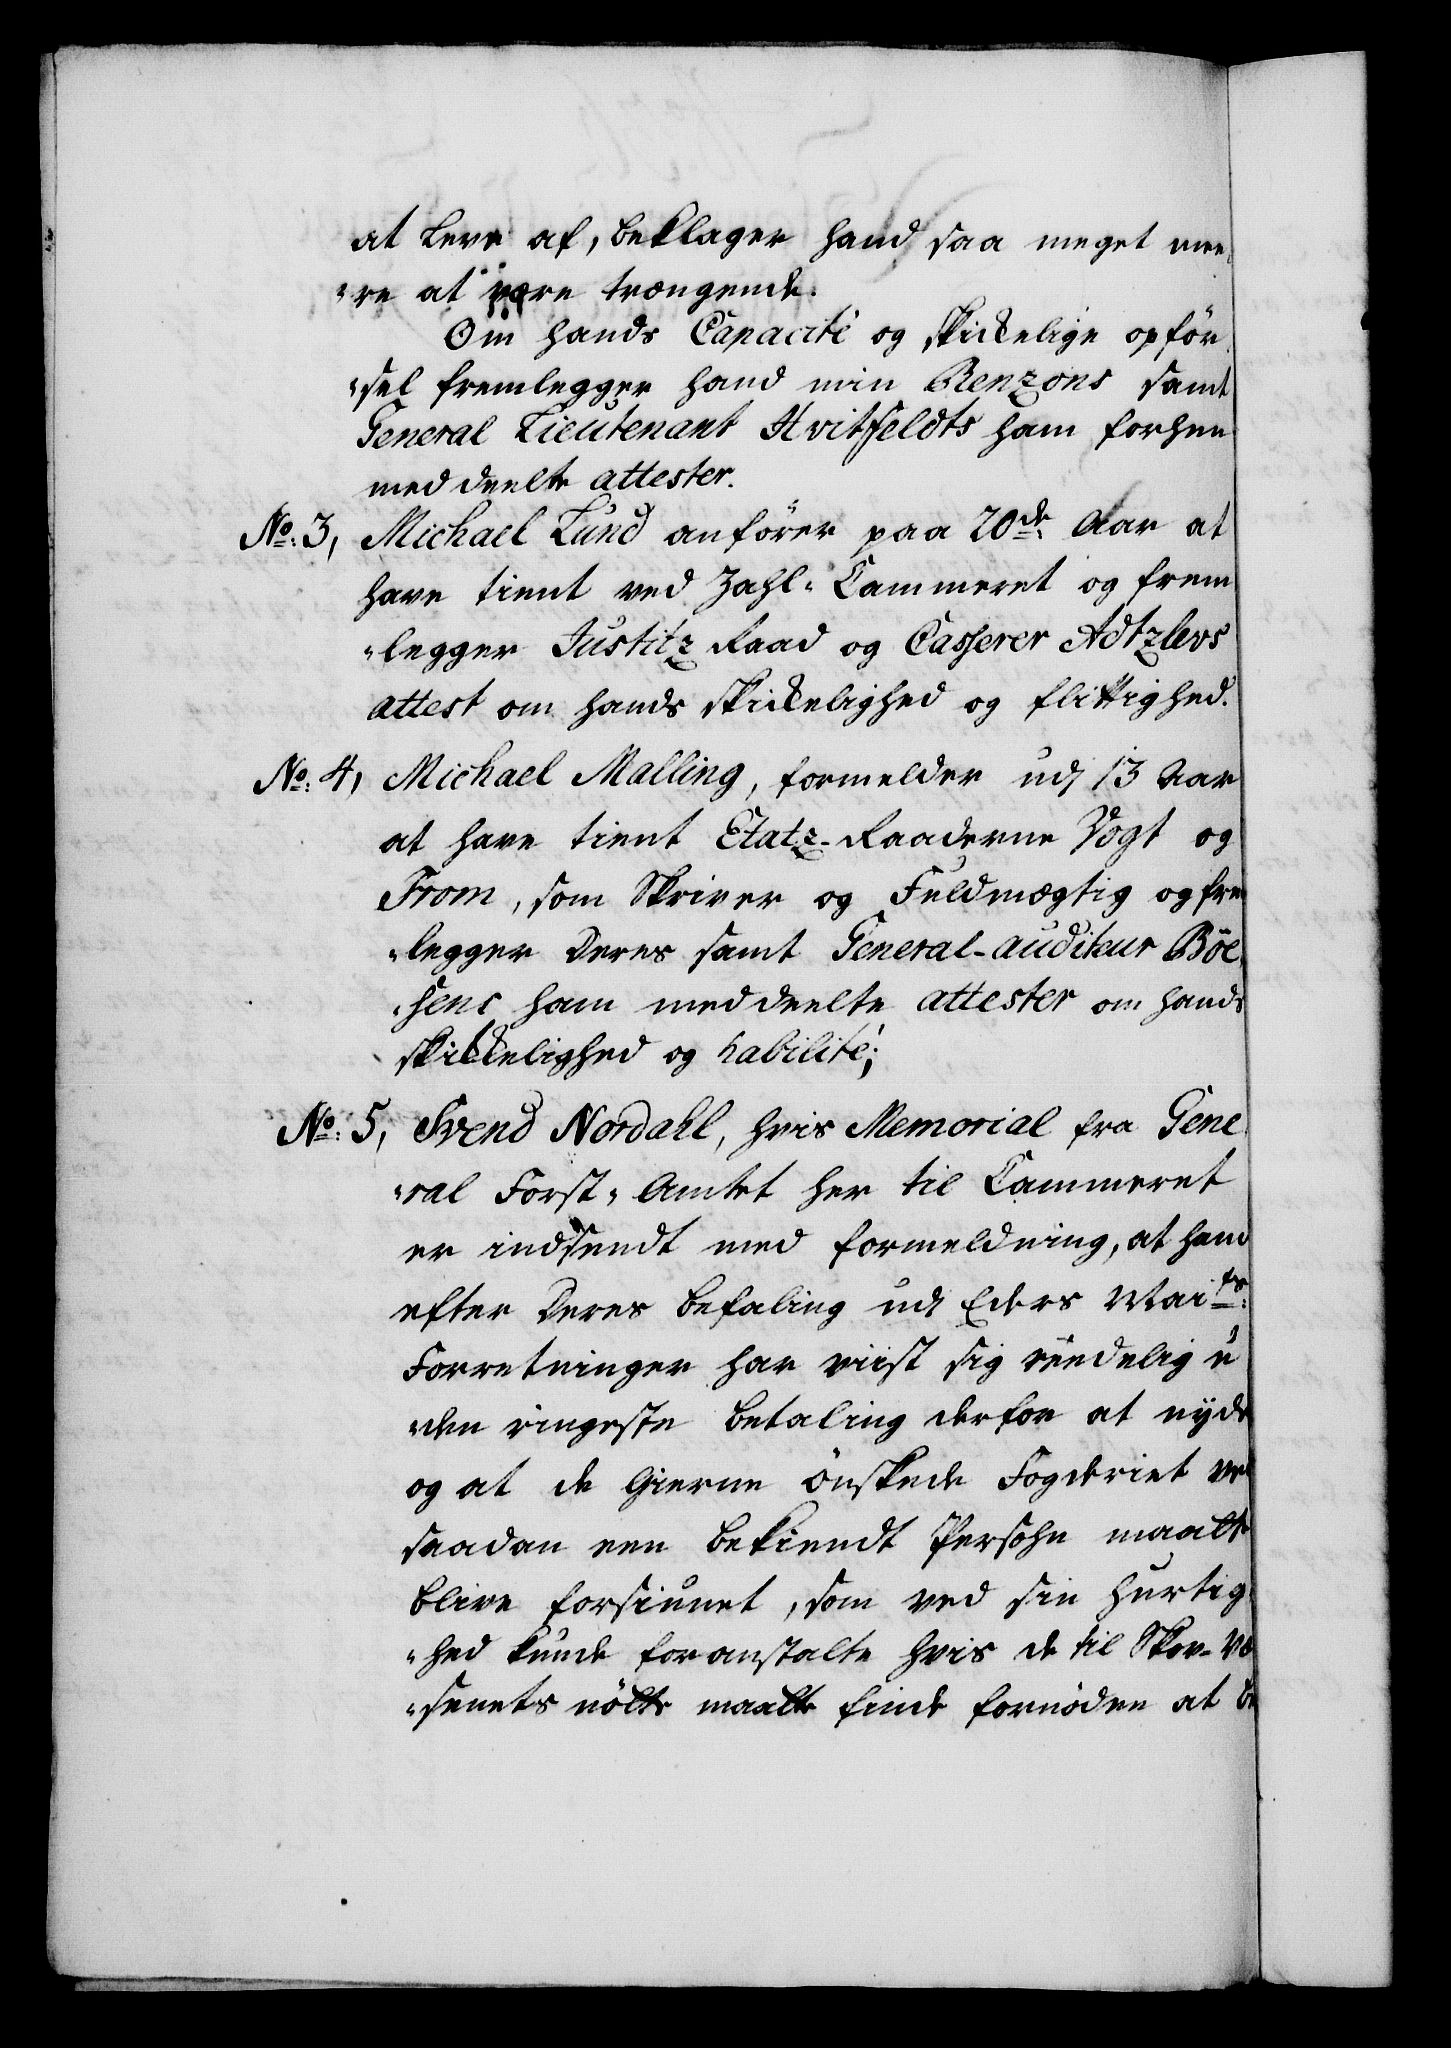 at leve af, beklager hand saa meget mee-
-re at være trængende.
Om hands Capacité og skickelige opför-
-sel fremlegger hand min Benzons samt
General Lieutenant Hvitfeldts ham forhen
meddeelte attester.
No: 3, Michael Lund anförer paa 20de Aar at
have tient ved Zahl-Cammeret og frem-
-legger Justitz Raad og Casserer Adtzlevs
attest om hands skickelighed og flittighed.
No: 4, Michael Malling, formelder udj 13 Aar
at have tient Etatz-Raaderne Vogt og
From, som Skriver og Fuldmægtig og frem-
-legger deres samt General-auditeur Böe-
-sens ham meddeelte attester om hands
skickelighed og habilité;
No: 5, Svend Nordahl, hvis Memorial fra Gene-
-ral Forst-Amtet her til Cammeret
er indsendt med formeldning, at hand
efter deres befaling udj Eders Maits:
Forretninger har viist sig vindelig u-
-den ringeste betaling derfor at nyde
og at de gierne önskede Fogderiet ved
saadan een bekiendt Persohn maatte
blive forsiunet, som ved sin hurtig-
-hed kunde foranstalte hvis de til Skov-Væ-
-senets nötte maatte finde fornöden at